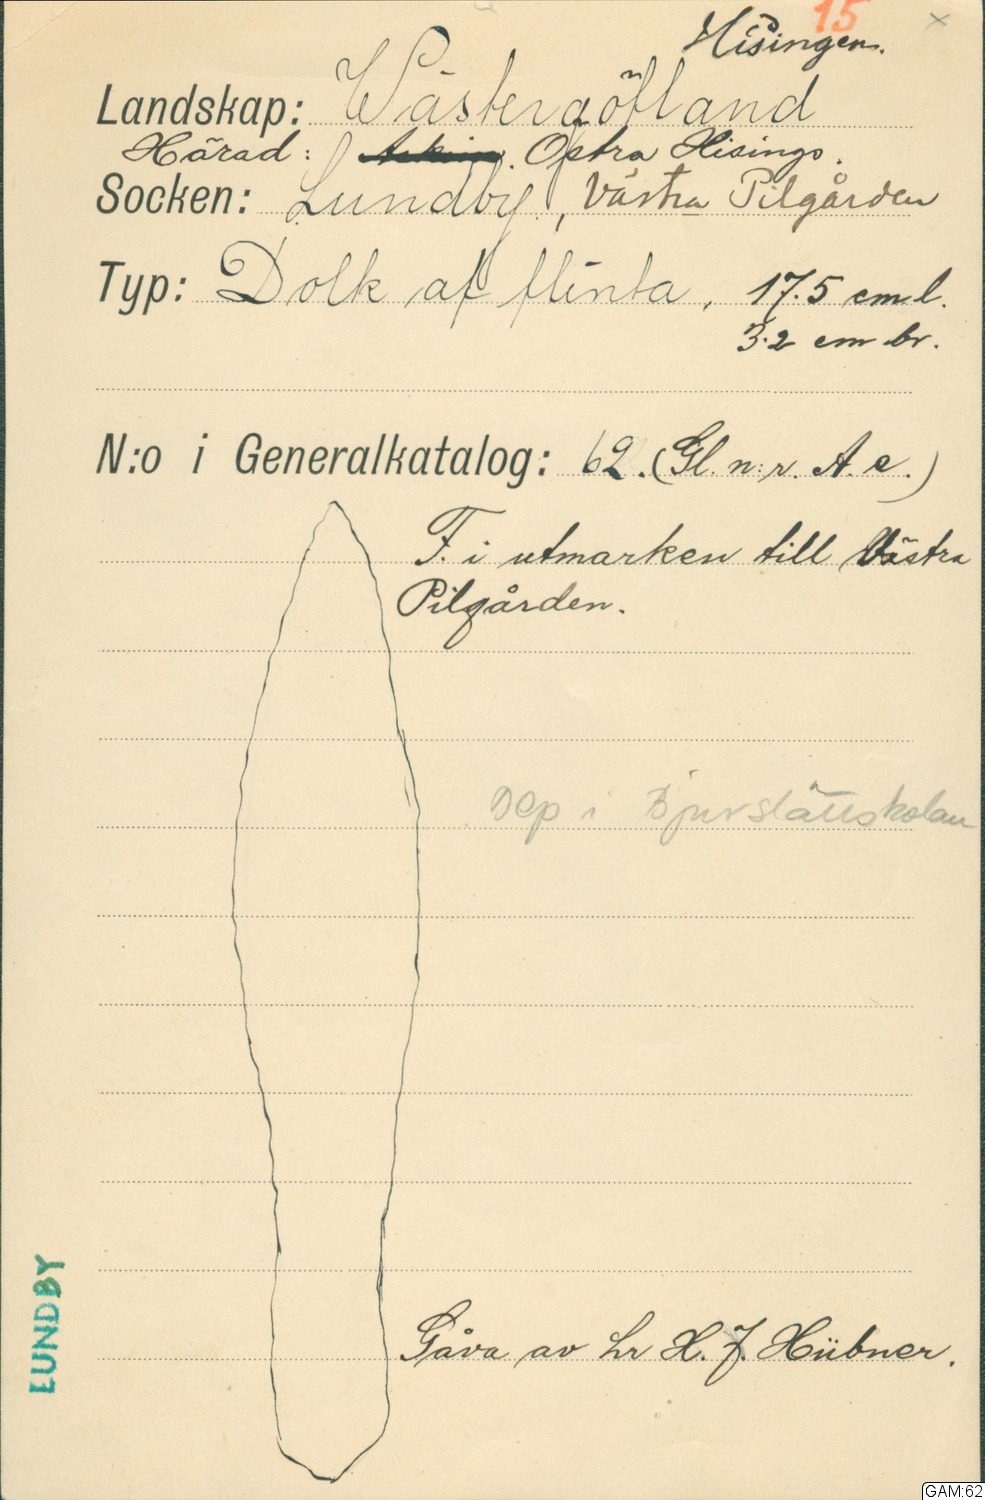 15
Hisingen.
Landskap: Wästergötland
Härad: Askim. Östra Hisings.
Socken: Lundby, Västra Pilgården
Typ: Dolk af flinta. 17.5 cm l.
3.2 cm br.
N:o i Generalkatalog: 62. (Gl. n:r. A. c.)
F. i utmarken till Västra
Pilgården.
Dep i Bjurslättsskolan
Gåva av hr H. J. Hübner.
LUNDBY
GAM:62